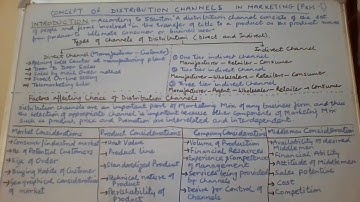 CONCEPT OF DISTRIBUTION CHANNELS IN MARKETING (Part-1)
INTRODUCTION - According to Stanton "A distribution channel consists of the set
of people and firms involved in the transfer of title to a product as the product moves
from producer to ultimate consumer or business user
Types of Channels of Distribution (Direct and Indirect).
Direct Channel (Manufacturer - Customer)
→ Opening Sale Center at manufacturing plant
→ Door To Door Sales
→ Sales by mail order method
→ Direct on-line selling
→ Telemarketing Sales
Indirect Channel
① One tier indirect channel
Manufacturer - Retailer - Consumer
② Two tier indirect channel
Manufacturer - Wholesalers - Retailer - Consumer
③ Three tier indirect channel
Manufacturer - Agent - Wholesaler - Retailer - Consumer
Factors Affecting Choice of Distribution Channels:
Distribution channels are an important part of Marketing Mix of any business firm, and thus
the selection of appropriate channel is important because other components of Marketing Mix
such as Product, price and Promotion are interrelated and interdependent.
Market Considerations
→ Consumer/industrial market
→ No. of Potential Customers
→ Size of Order
→ Buying Habits of Customer
→ Geographical Considerations of market
Product Considerations
→ Unit Value
→ Product Line
→ Standardized Product
→ Technical nature of Product
→ Perishability of Product
Company Considerations
→ Volume of Production
→ Financial Resources
→ Experience & Competence of Management
→ Services being provided for Channels
→ Desire for Control of Channels
Middlemen Consideration
→ Availability of desired Middlemen
→ Financial Ability
→ Attitude of Middlemen
→ Sales Potential
→ Cost
→ Competition